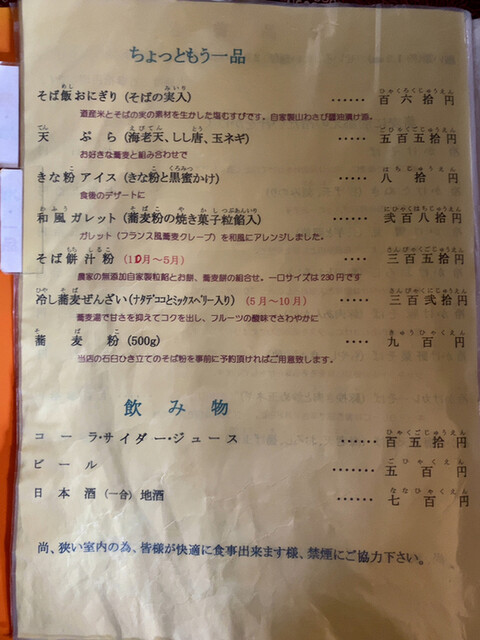 ちょっともう一品
そば飯おにぎり (そばの実入) ・・・・・・ 百六拾円
道産米とそばの実の素材を生かした塩むすびです。自家製山わさび醤油漬け添。
天ぷら (海老天、しし唐、玉ネギ) ・・・・・・ 五百五拾円
お好きな蕎麦と組み合わせで
きな粉アイス (きな粉と黒蜜かけ) ・・・・・・ 八拾円
食後のデザートに
和風ガレット (蕎麦粉の焼き菓子粒餡入) ・・・・・・ 弐百八拾円
ガレット (フランス風蕎麦クレープ) を和風にアレンジしました。
そば餅汁粉 (10月～5月) ・・・・・・ 三百五拾円
農家の無添加自家製粒餡とお餅、蕎麦餅の組合せ。一口サイズは230円です
冷し蕎麦ぜんざい (ナタデココとミックスベリー入り) (5月～10月) ・・・・・・ 三百弐拾円
蕎麦湯で甘さを抑えてコクを出し、フルーツの酸味でさわやかに
蕎麦粉 (500g) ・・・・・・ 九百円
当店の石臼ひき立てのそば粉を事前に予約頂ければご用意致します。
飲み物
コーラ・サイダー・ジュース ・・・・・ 百五拾円
ビール ・・・・・ 五百円
日本酒 (一合) 地酒 ・・・・・ 七百円
尚、狭い室内の為、皆様が快適に食事出来ます様、禁煙にご協力下さい。